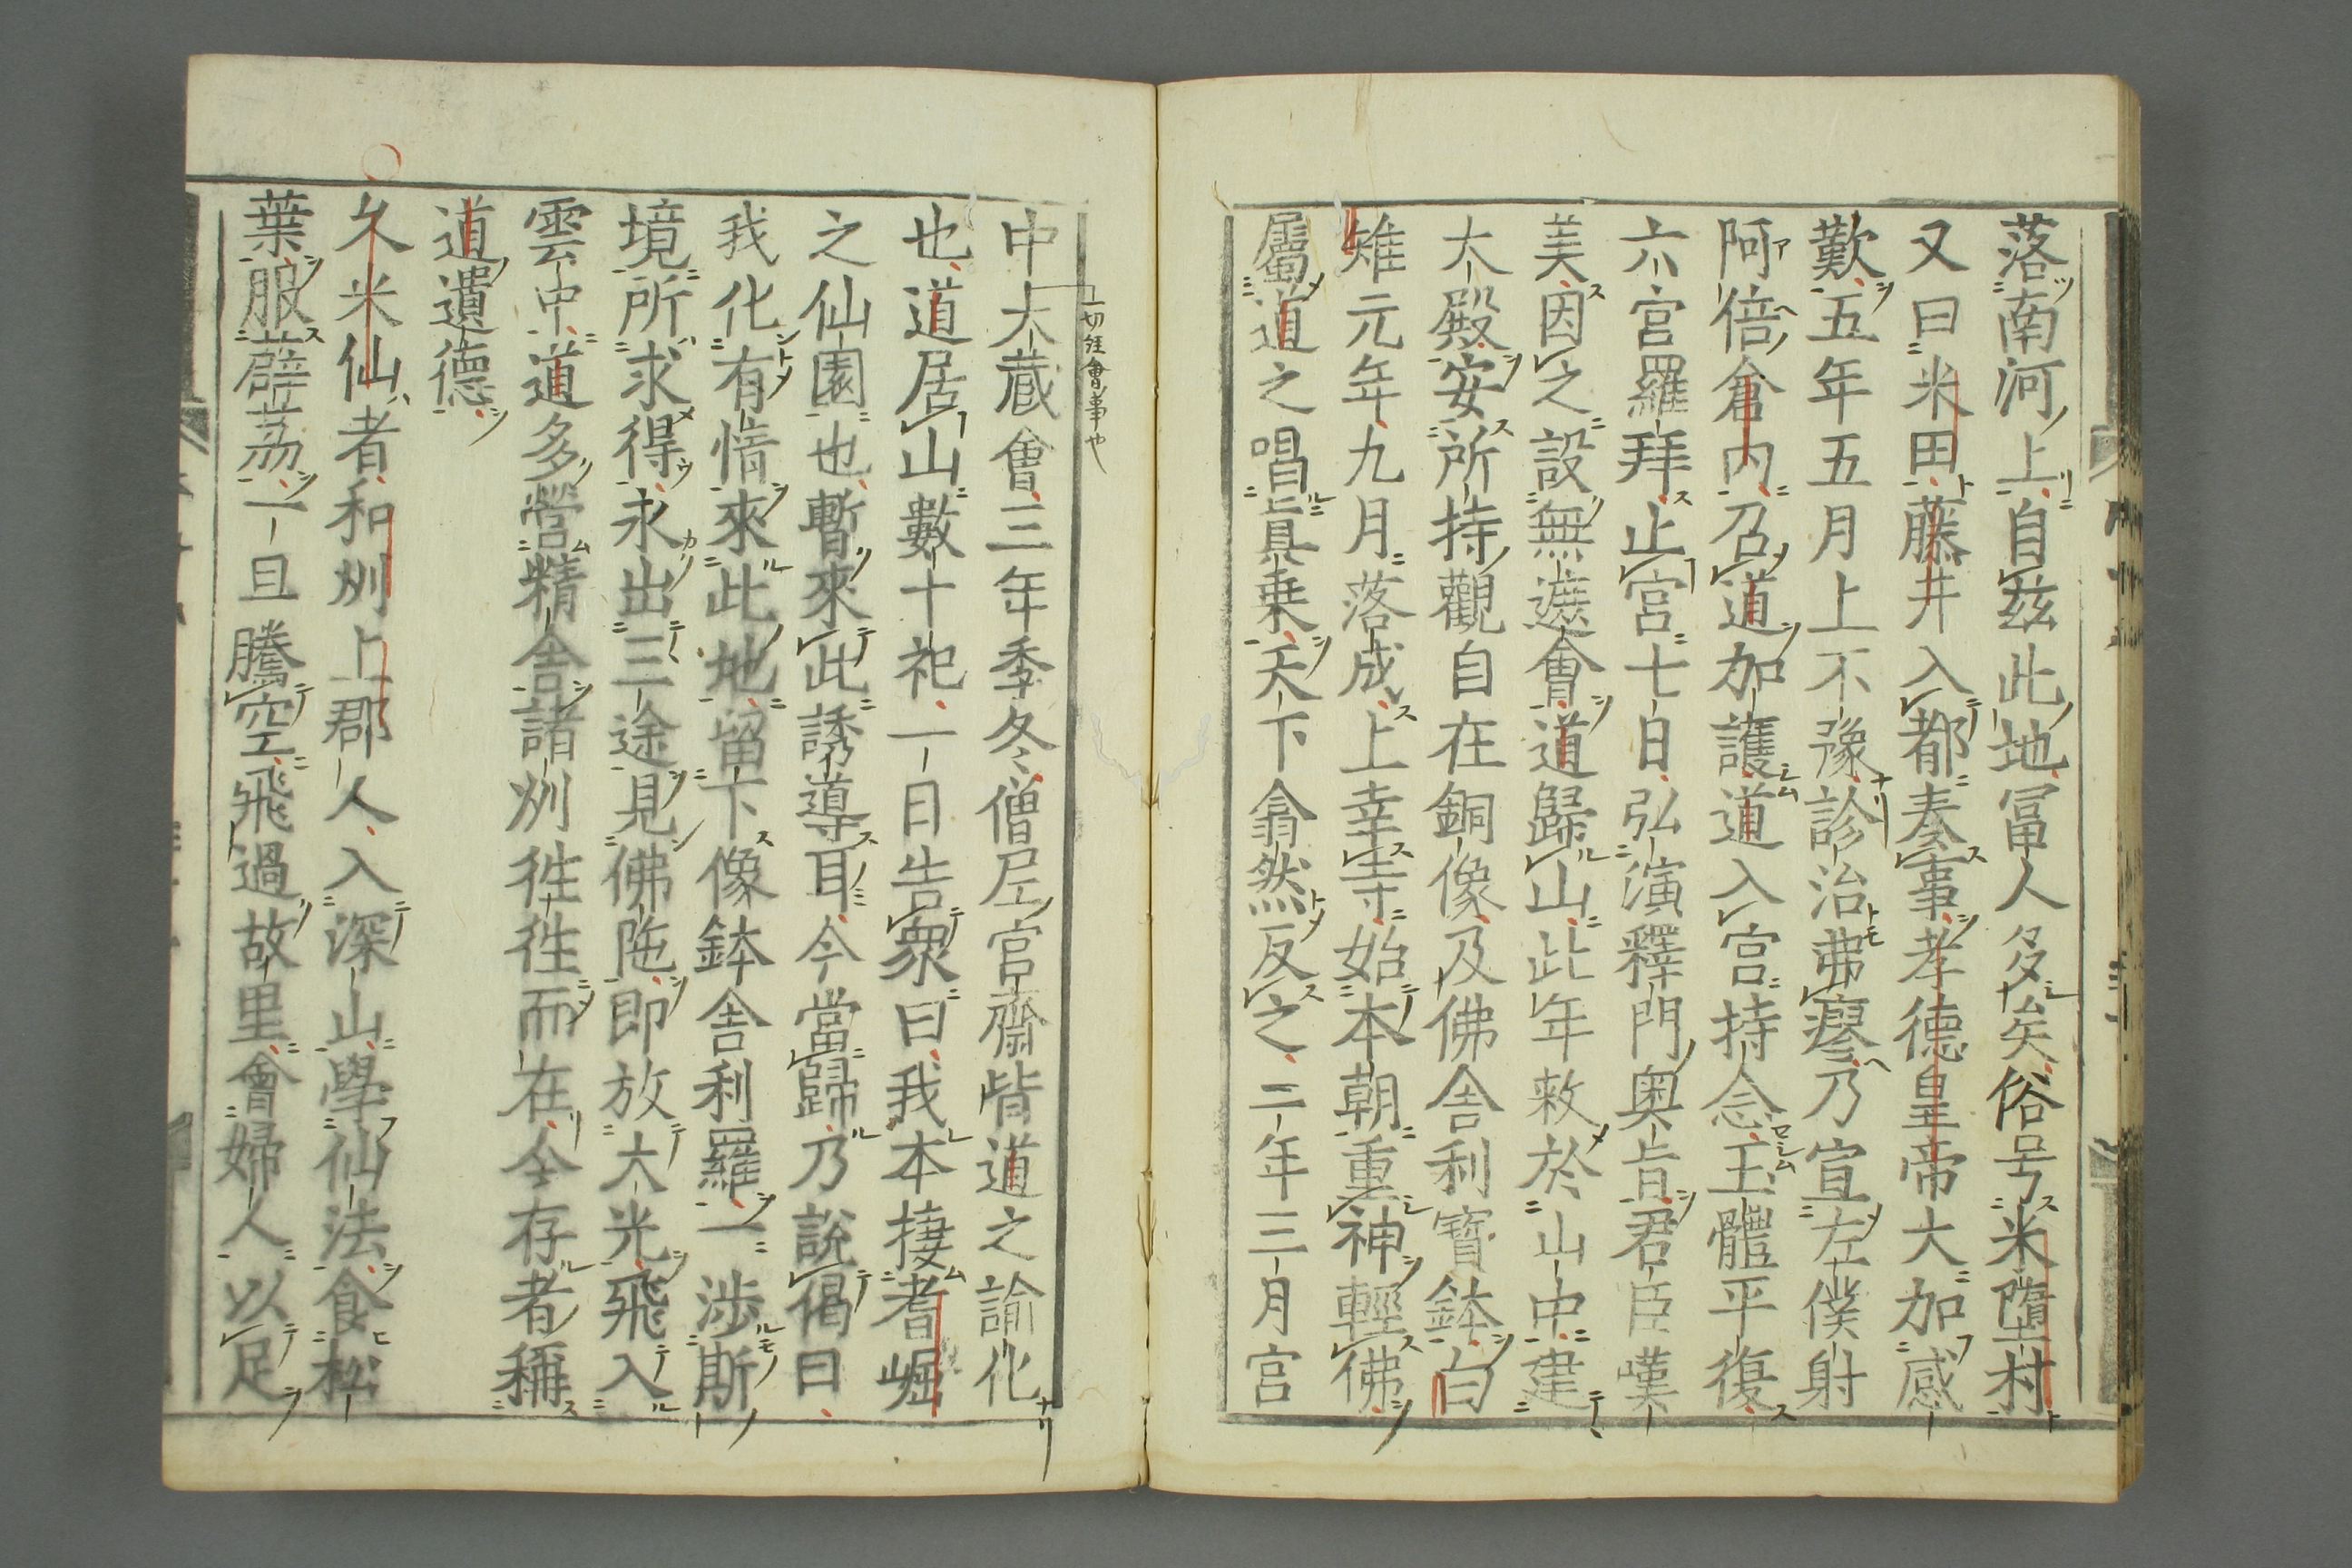 落南河上自玆此地冨人多矣俗号米墮村
又曰米田藤井入都奏事孝德皇帝大加感
歎五年五月上不豫診治弗瘳乃宣左僕射
阿倍倉内召道加護道入宮持念玉體平復
六宮羅拜止宮七日弘演釋門奥旨君臣嘆
美因之設無遮會道歸山此年敕於山中建
大殿安所持觀自在銅像及佛舎利寳鉢白
雉元年九月落成上幸寺始本朝重神輕佛
屬道之唱眞乗天下翕然反之二年三月宮
中大蔵會三年季冬僧尼官齋皆道之諭化
一切経會事也
也道居山數十祀一日告衆曰我本捿耆崛
之仙園也暫來此誘導耳今當歸乃說偈曰
我化有情來此地留下像鉢舎利羅一涉斯
境所求得永出三途見佛陁即放大光飛入
雲中道多營精舎諸州徃徃而在今存者稱
道遺德
久米仙者和州上郡人入深山學仙法食松
葉服薜茘一旦騰空飛過故里會婦人以足